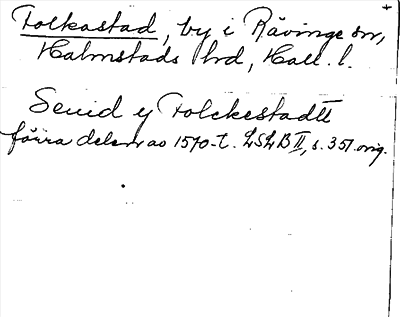 Tolkastad, by i Rävinge sn,
Halmstads hrd, Hall. l.
Seuid y Tolckestadt
förra delen av 1570-t. LSLB II, s. 351. orig.